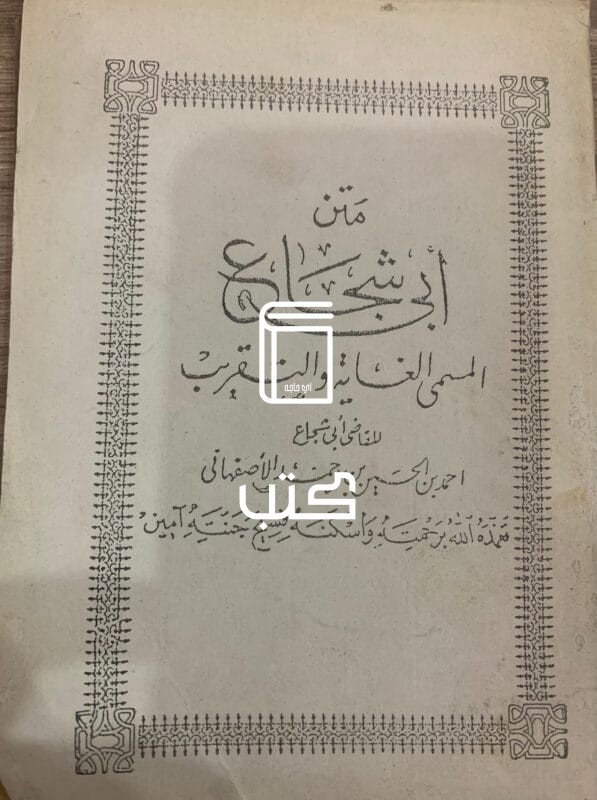 متن
أبي شجاع
المسمى الغاية والتقريب
للقاضي أبي شجاع
احمد بن الحسين بن احمد الأصفهاني
تغمده الله برحمته وأسكنه فسيح جنته آمين
كتب